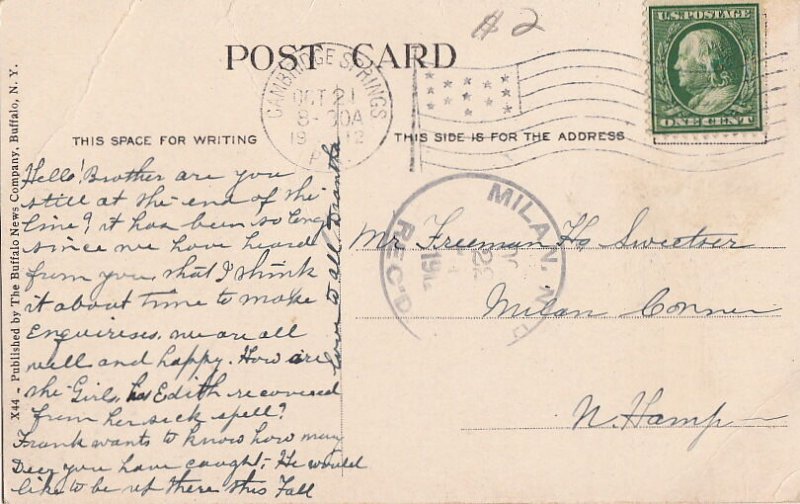 #2
U.S. POSTAGE
ONE CENT
POST CARD
CAMBRIDGE SPRINGS
OCT 21
8-30A
1912
THIS SPACE FOR WRITING
THIS SIDE IS FOR THE ADDRESS
X44 - Published by The Buffalo News Company, Buffalo, N. Y.
Hello! Brother are you
still at the end of the
line? it has been so long
since we have heard
from you, that I think
it about time to make
Enquireses, we are all
well and happy. How are
the Girls, has Edith recovered
from her sick spell?
Frank wants to know how many
Deer you have caught; He would
like to be up there this Fall
love to all
MILAN, N.H.
REC'D
Mr Freeman H. Sweetser
Milan Corner
N. Hamp